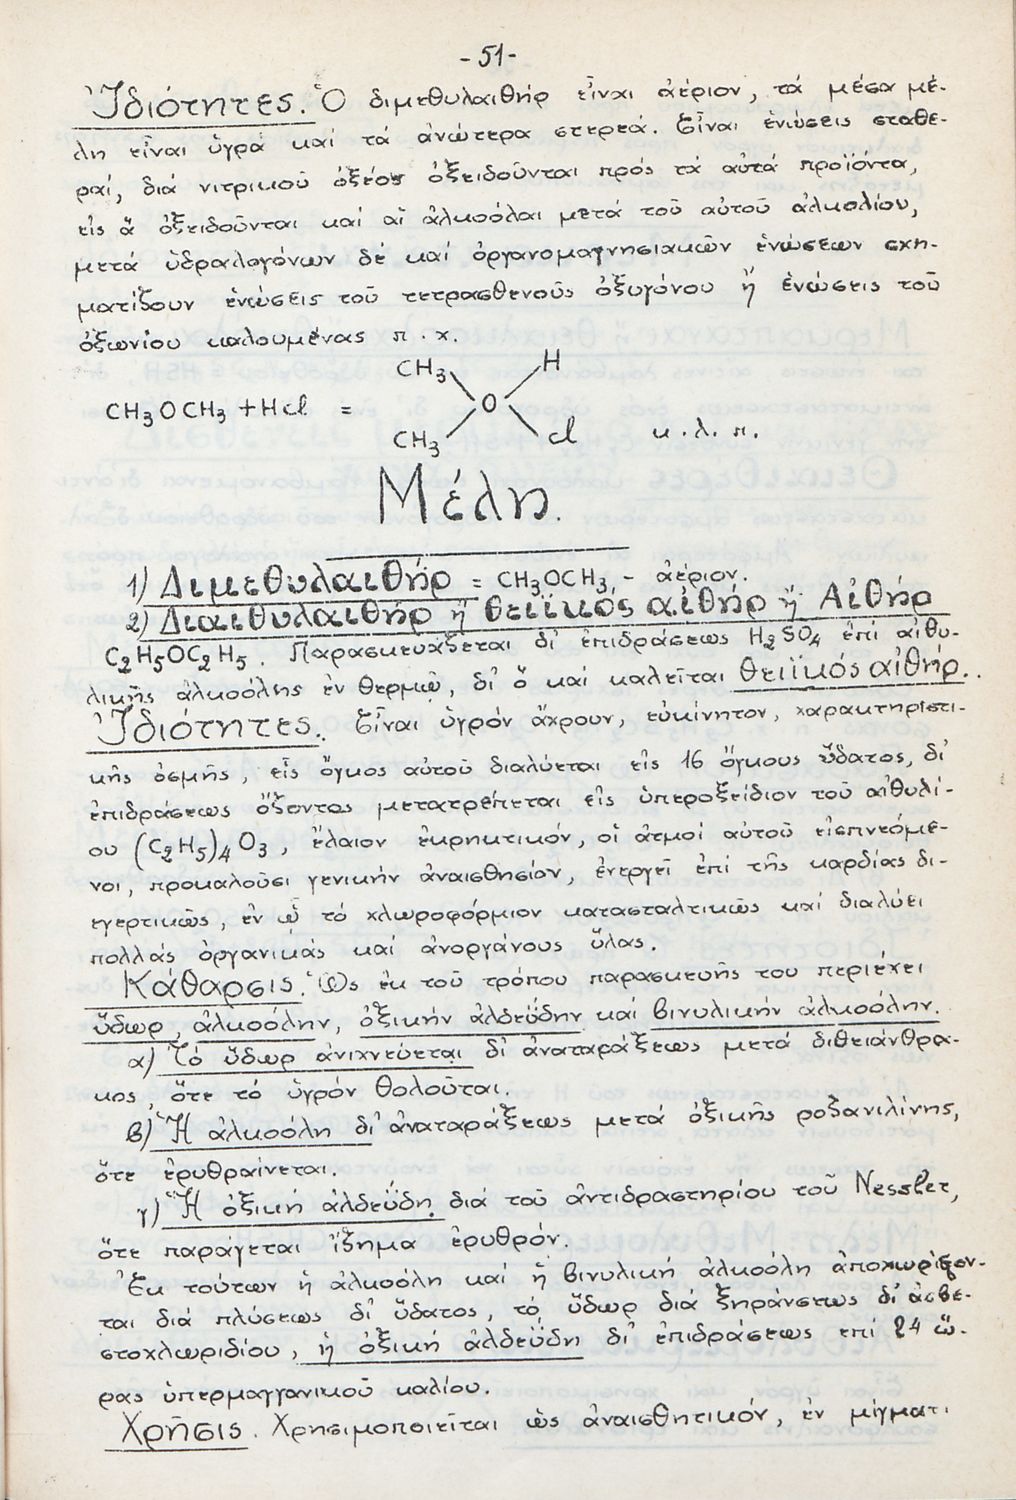 -51-
Ἰδιότητες. Ὁ διμεθυλαιθήρ εἶναι ἀέριον, τά μέσα μέ-
λη εἶναι ὑγρά καί τά ἀνώτερα στερεά. Εἶναι ἑνώσεις σταθε-
ραί, διά νιτρικοῦ ὀξέος ὀξειδοῦνται πρός τά αὐτά προϊόντα,
εἰς ἅ ὀξειδοῦνται καί αἱ ἀλκοόλαι μετά τοῦ αὐτοῦ ἀλκολίου,
μετά ὑδραλογόνων δέ καί ὀργανομαγνησιακῶν ἑνώσεων σχη-
ματίζουν ἑνώσεις τοῦ τετρασθενοῦς ὀξυγόνου ἤ ἑνώσεις τοῦ
ὀξωνίου καλουμένας π.χ.
CH3 H
CH3OCH3 + HCl = O
CH3 Cl κ.λ.π.
Μέλη.
1) Διμεθυλαιθήρ = CH3OCH3 - ἀέριον.
2) Διαιθυλαιθήρ ἤ θειϊκός αἰθήρ ἤ Αἰθήρ
C2H5OC2H5. Παρασκευάζεται δι' ἐπιδράσεως H2SO4 ἐπί αἰθυ-
λικῆς ἀλκοόλης ἐν θερμῷ, δι' ὅ καί καλεῖται θειϊκός αἰθήρ..
Ἰδιότητες. Εἶναι ὑγρόν ἄχρουν, εὐκίνητον, χαρακτηριστι-
κῆς ὀσμῆς, εἷς ὄγκος αὐτοῦ διαλύεται εἰς 16 ὄγκους ὕδατος, δι'
ἐπιδράσεως ὄζοντος μετατρέπεται εἰς ὑπεροξείδιον τοῦ αἰθυλί-
ου (C2H5)4O3, ἔλαιον ἐκρηκτικόν, οἱ ἀτμοί αὐτοῦ εἰσπνεόμε-
νοι, προκαλοῦσι γενικήν ἀναισθησίαν, ἐνεργεῖ ἐπί τῆς καρδίας δι-
εγερτικῶς, ἐν ᾧ τό χλωροφόρμιον κατασταλτικῶς καί διαλύει
πολλάς ὀργανικάς καί ἀνοργάνους ὕλας.
Κάθαρσις. Ὡς ἐκ τοῦ τρόπου παρασκευῆς του περιέχει
ὕδωρ, ἀλκοόλην, ὀξικήν ἀλδεΰδην καί βινυλικήν ἀλκοόλην.
α) Τό ὕδωρ ἀνιχνεύεται δι' ἀναταράξεως μετά διθειάνθρα-
κος, ὅτε τό ὑγρόν θολοῦται.
β) Ἡ ἀλκοόλη δι' ἀναταράξεως μετά ὀξικῆς ροζανιλίνης,
ὅτε ἐρυθραίνεται.
γ) Ἡ ὀξικη ἀλδεΰδη διά τοῦ ἀντιδραστηρίου τοῦ Nessler,
ὅτε παράγεται ἵζημα ἐρυθρόν.
Ἐκ τούτων ἡ ἀλκοόλη καί ἡ βινυλική ἀλκοόλη ἀποχωρίζον-
ται διά πλύσεως δι' ὕδατος, τό ὕδωρ διά ξηράνσεως δι' ἀσβε-
στοχλωριδίου, ἡ ὀξική ἀλδεΰδη δι' ἐπιδράσεως ἐπί 24 ὥ-
ρας ὑπερμαγγανικοῦ καλίου.
Χρῆσις. Χρησιμοποιεῖται ὡς ἀναισθητικόν, ἐν μίγματι